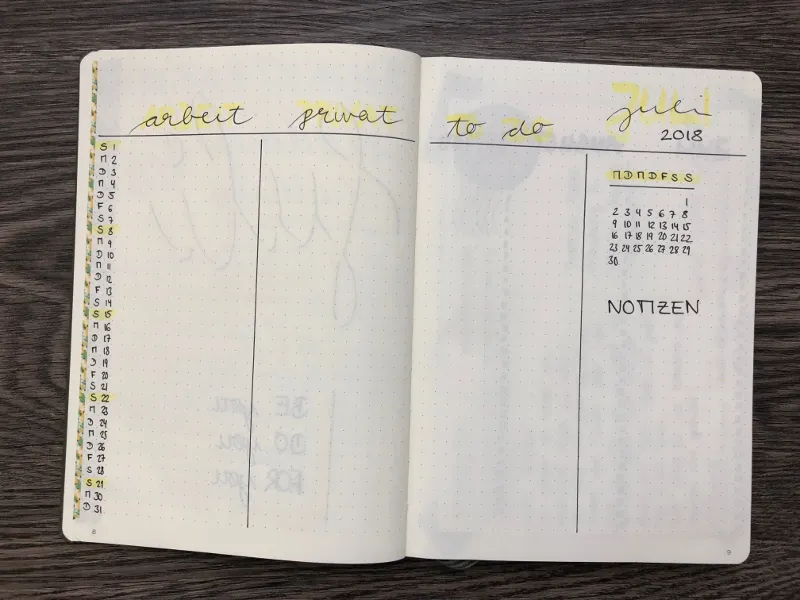 arbeit privat
S 1
M 2
D 3
M 4
D 5
F 6
S 7
S 8
M 9
D 10
M 11
D 12
F 13
S 14
S 15
M 16
D 17
M 18
D 19
F 20
S 21
S 22
M 23
D 24
M 25
D 26
F 27
S 28
S 29
M 30
D 31
8
to do
juli
2018
M D M D F S S
1
2 3 4 5 6 7 8
9 10 11 12 13 14 15
16 17 18 19 20 21 22
23 24 25 26 27 28 29
30
NOTIZEN
9